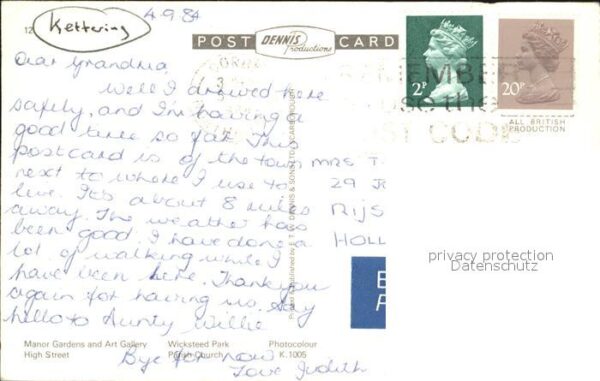 Kettering
4-9-84
POST DENNIS Productions CARD
Dear Grandma,
Well I arrived here
safely, and I'm having a
good time so far. This
postcard is of the town
next to where I use to
live. It's about 8 miles
away. The weather has
been good. I have done a
lot of walking while I
have been here. Thankyou
again for having us. Say
hello to Aunty Willie
Bye for now
Love Judith
2P
20P
REMEMBER
use the
POST CODE
ALL BRITISH
PRODUCTION
MRS T
29 J
RIJS
HOLL
privacy protection
Datenschutz
Manor Gardens and Art Gallery
High Street
Wicksteed Park
Parish Church
Photocolour
K.1005